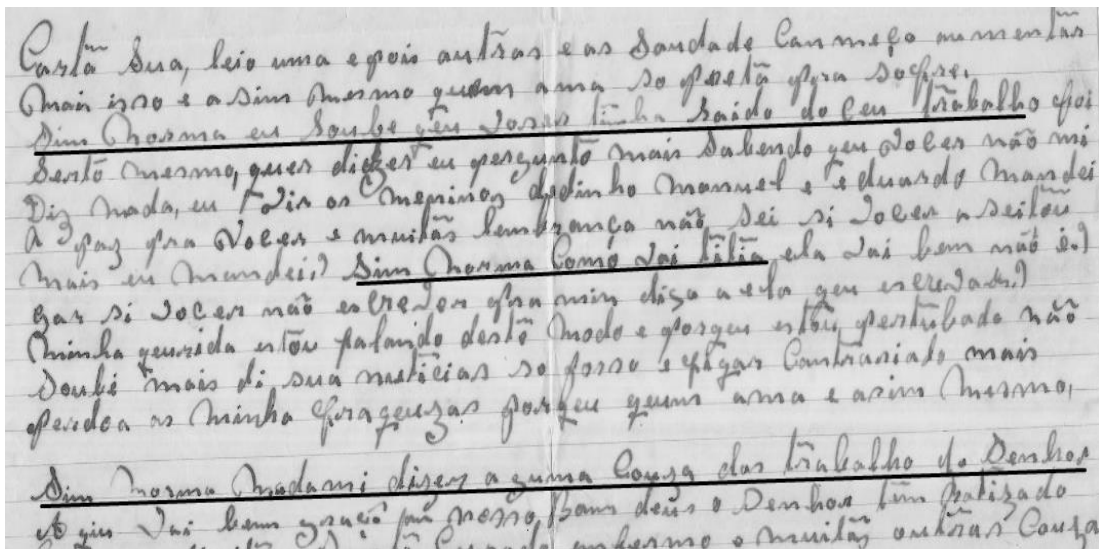 Cartã Sua, leio uma e pois autras e as Saudade Canmeço aumentar
Mais isso e a sim mesmo quem ama so pretã pra Sofre.
Sim Norma eu Soube qeu voses tinha Saido do Ceu trabalho foi
Sertõ mesmo, quer dizer eu pergunto mais Sabendo qeu voces não mi
Diz nada, eu os Meninos dedinho Manuel e eduardo Mandei
A paz pra voces e muitãs lembrança não Sei si voces aseitõu
mais eu Mandei? Sim Norma Como vai titiã ela vai bem não é?
si voces não escrever pra min diga a ela qeu escreva
Minha qeurida estõu falando destõ Modo e porqeu estõu pertubado não
Soubi mais di sua nuticias so posso e figar Cantrariado mais
perdoa as Minha fraqeuzas porqeu quem ama e asim Mesmo,
Sim Norma Madami dizer a guma Couza das trabalho do Senhor
A qiu vai bem nosso Bam deus o Senhor tem
enfermo o muitãs outras Couza